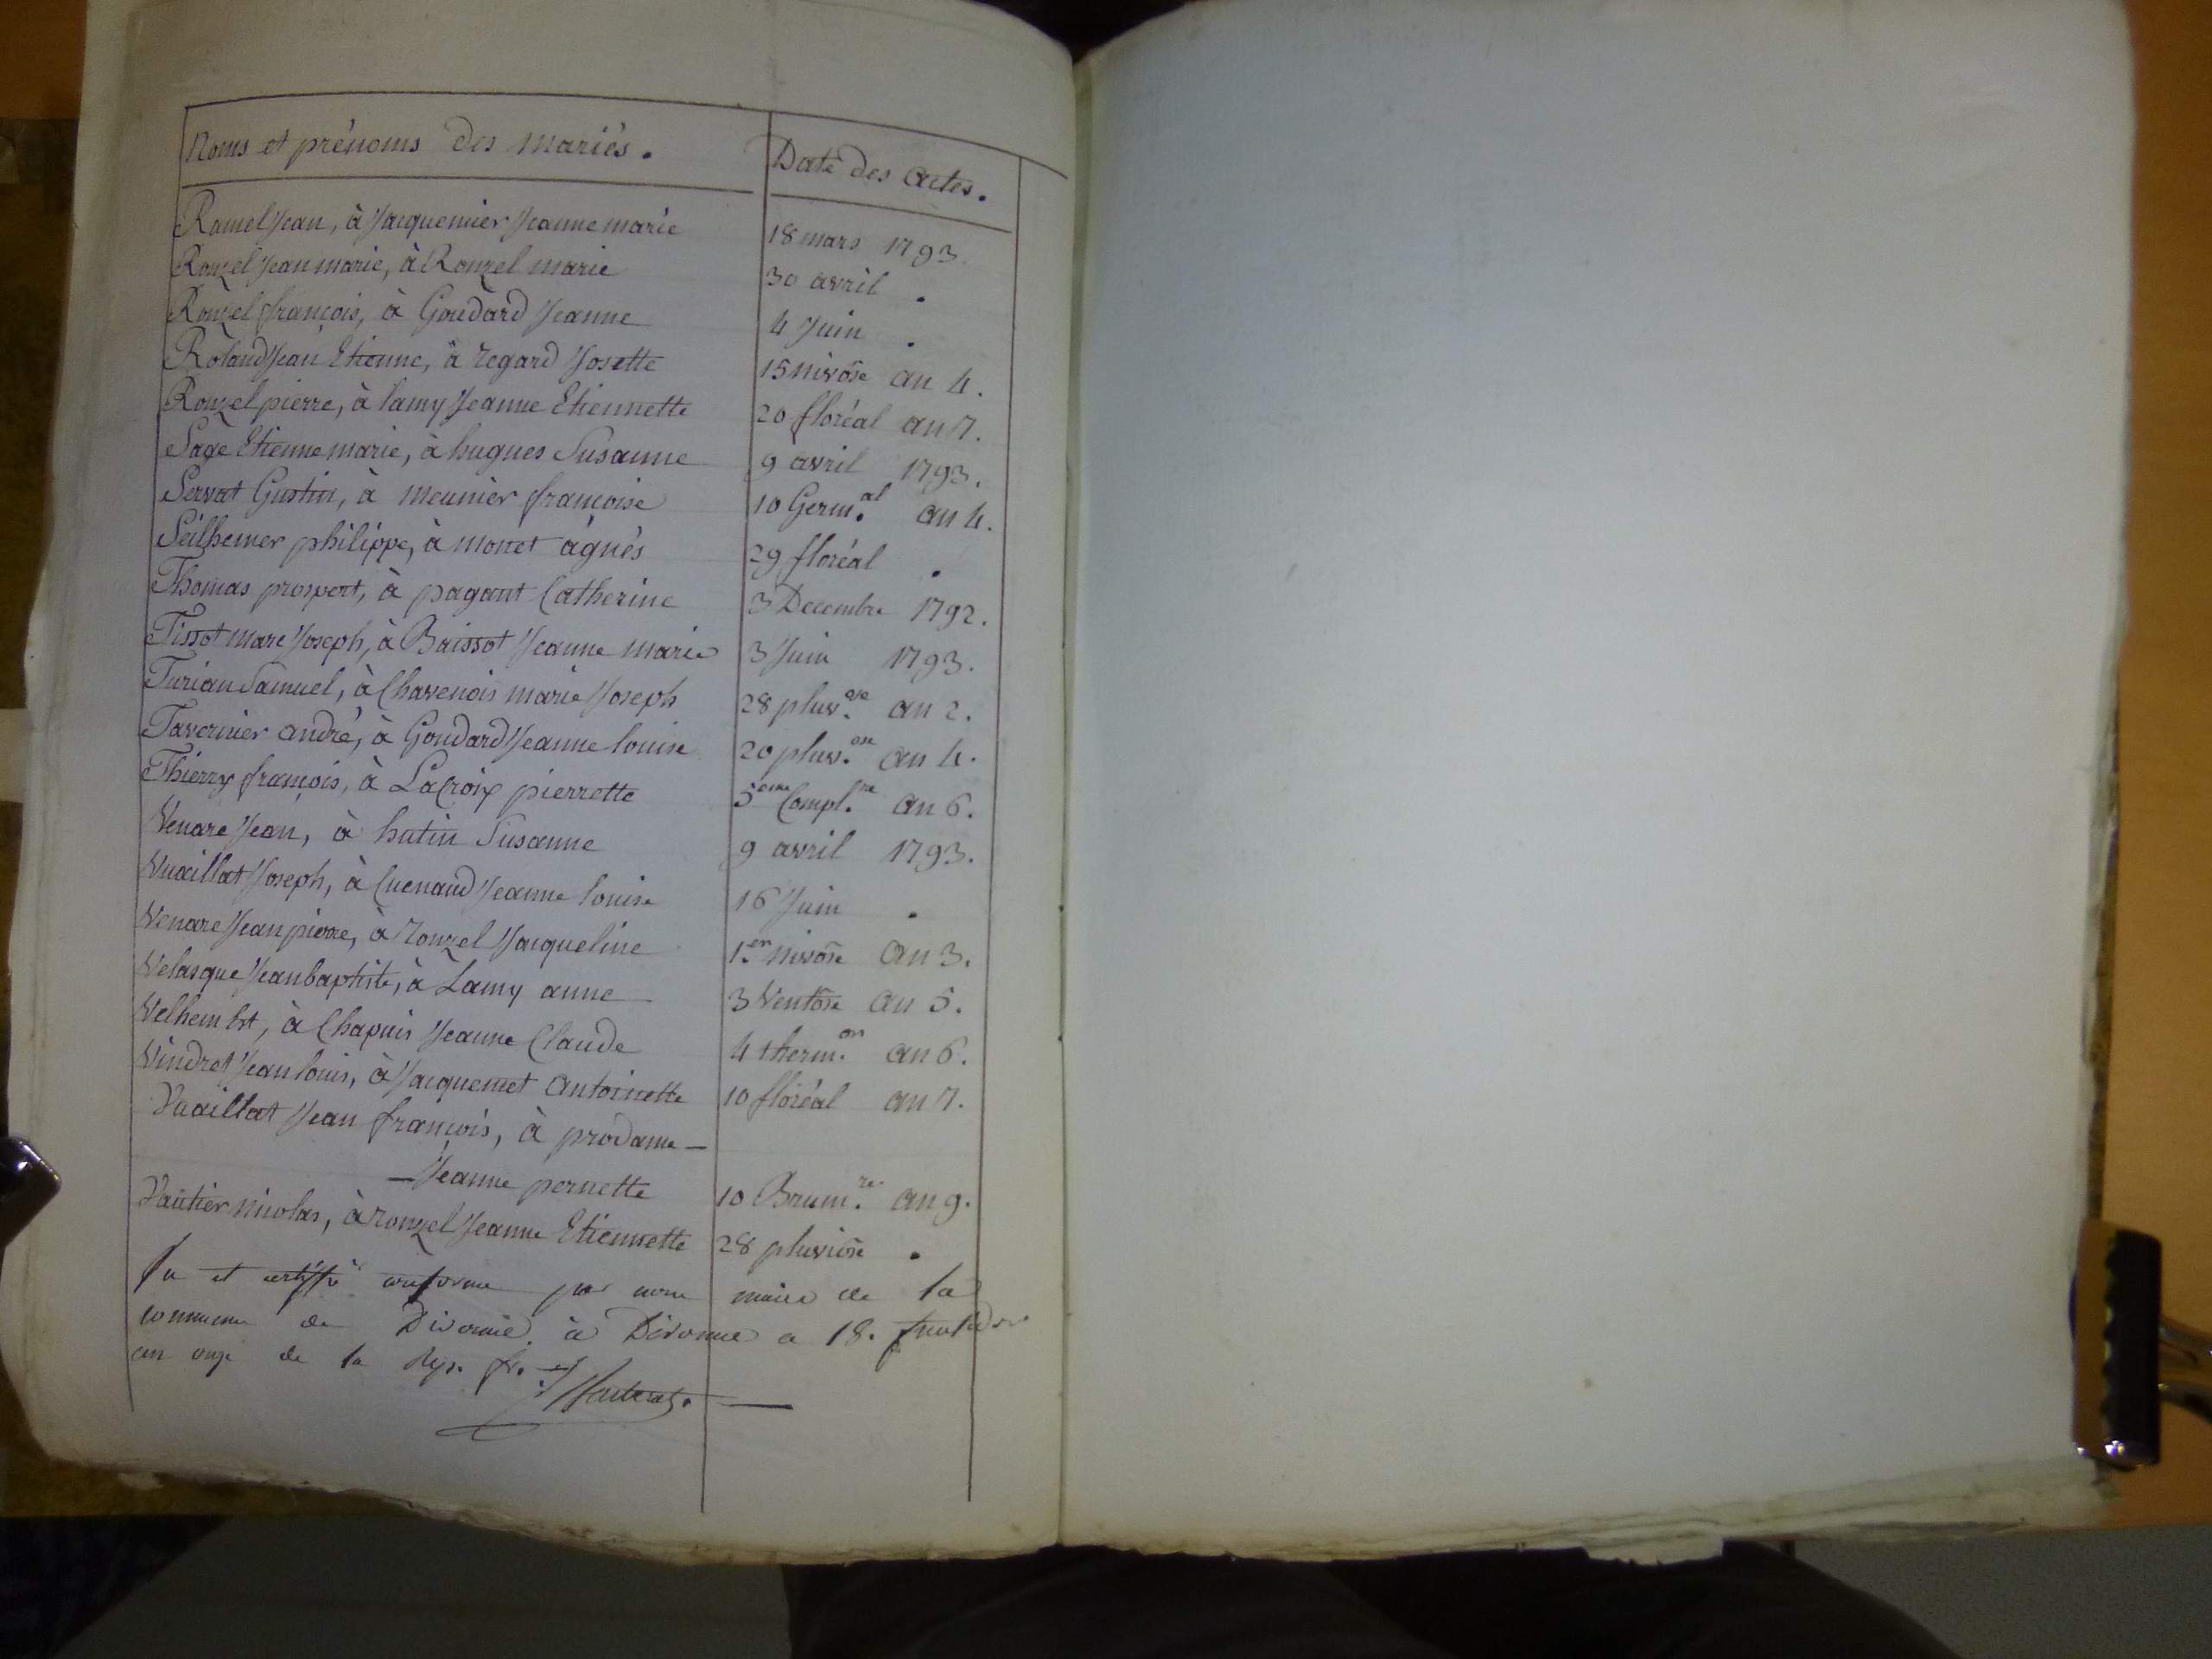 Noms et prénoms des mariés. Date des actes.
Ramel Jean, à Jacquemier Jeanne marie 18 mars 1793.
Rouzel Jean marie, à Rouzel marie 30 avril .
Rouzel françois, à Goudard Jeanne 4 Juin .
Roland Jean Etienne, à regard Josette 15 nivôse an 4.
Rouzel pierre, à lamy Jeanne Etiennette 20 floréal an 7.
Sage Etienne marie, à hugues Susanne 9 avril 1793.
Servat Gustin, à meunier françoise 10 Germ.al an 4.
Seilhemer philippe, à monet agnès 29 floréal .
Thomas prospert, à pagant Catherine 3 Decembre 1792.
Tissot marc Joseph, à Baissot Jeanne marie 3 Juin 1793.
Turian Samuel, à Chavenois marie Joseph 28 pluv.ose an 2.
Tavernier andré, à Goudard Jeanne louise 20 pluv.ose an 4.
Thierry françois, à LaCroix pierrette 5eme Compl.re an 6.
Venare Jean, à hutin Susanne 9 avril 1793.
Vuaillat Joseph, à Cuenaud Jeanne louise 16 Juin .
Venare Jean pierre, à rouzel Jacqueline 1.er nivôse an 3.
Velasque Jean baptiste, à Lamy anne 3 Ventôse an 5.
Velhem, à Chapuis Jeanne Claude 4 therm.or an 6.
Vindret Jean louis, à Jacquemet antoinette 10 floréal an 7.
Vuaillat Jean françois, à prodame —
— Jeanne pernette 10 Brum.re an 9.
Vautier nicolas, à rouzel Jeanne Etiennette 28 pluviôse .
Vu et certifié conforme par nous maire de la
commune de Divonne. à Divonne a 18. fructidor
an onze de la Rép. fr.